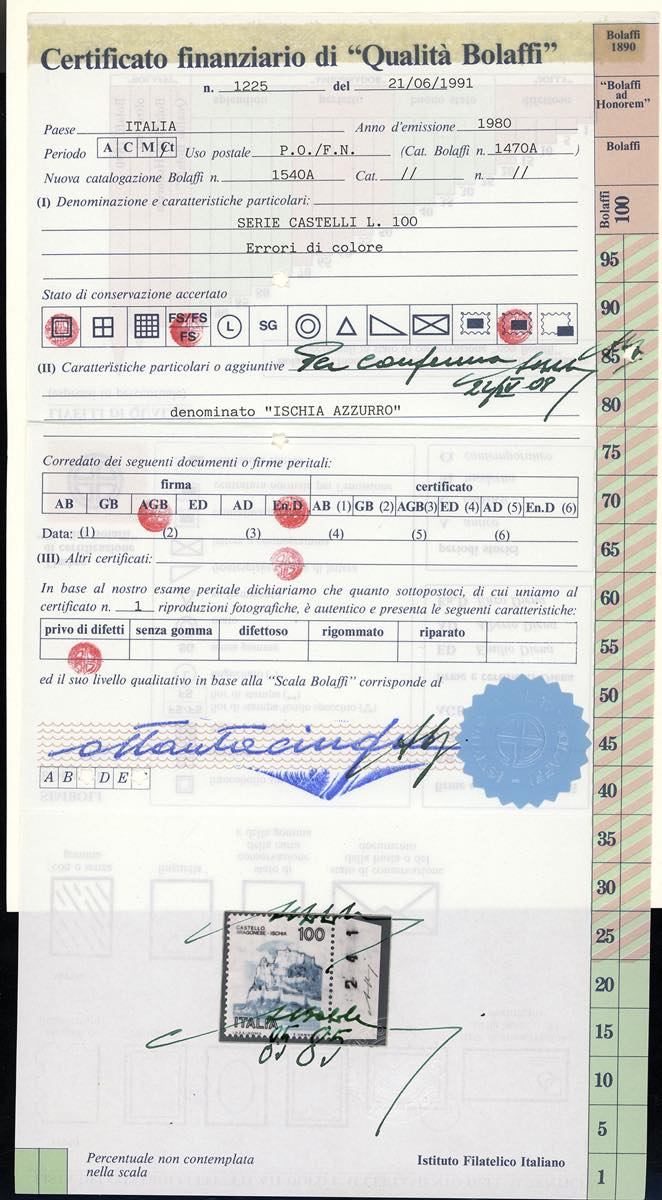 Certificato finanziario di “Qualità Bolaffi”
n. 1225 del 21/06/1991
Paese ITALIA Anno d'emissione 1980
Periodo A C M Ct Uso postale P.O./F.N. (Cat. Bolaffi n. 1470A )
Nuova catalogazione Bolaffi n. 1540A Cat. // n. //
(I) Denominazione e caratteristiche particolari:
SERIE CASTELLI L. 100
Errori di colore
Stato di conservazione accertato
FS/FS
FS
L SG
(II) Caratteristiche particolari o aggiuntive Per conferma
denominato "ISCHIA AZZURRO"
Corredato dei seguenti documenti o firme peritali:
firma certificato
AB GB AGB ED AD En.D AB (1) GB (2) AGB(3) ED (4) AD (5) En.D (6)
Data: (1) (2) (3) (4) (5) (6)
(III) Altri certificati:
In base al nostro esame peritale dichiariamo che quanto sottopostoci, di cui uniamo al
certificato n. 1 riproduzioni fotografiche, è autentico e presenta le seguenti caratteristiche:
privo di difetti senza gomma difettoso rigommato riparato
ed il suo livello qualitativo in base alla “Scala Bolaffi” corrisponde al
ottantacinque
A B D E
CASTELLO
ARAGONESE - ISCHIA
100
ITALIA
2 4 1
85 85
Percentuale non contemplata
nella scala
Istituto Filatelico Italiano
Bolaffi
1890
“Bolaffi
ad
Honorem”
Bolaffi
Bolaffi
100
95
90
85
80
75
70
65
60
55
50
45
40
35
30
25
20
15
10
5
1